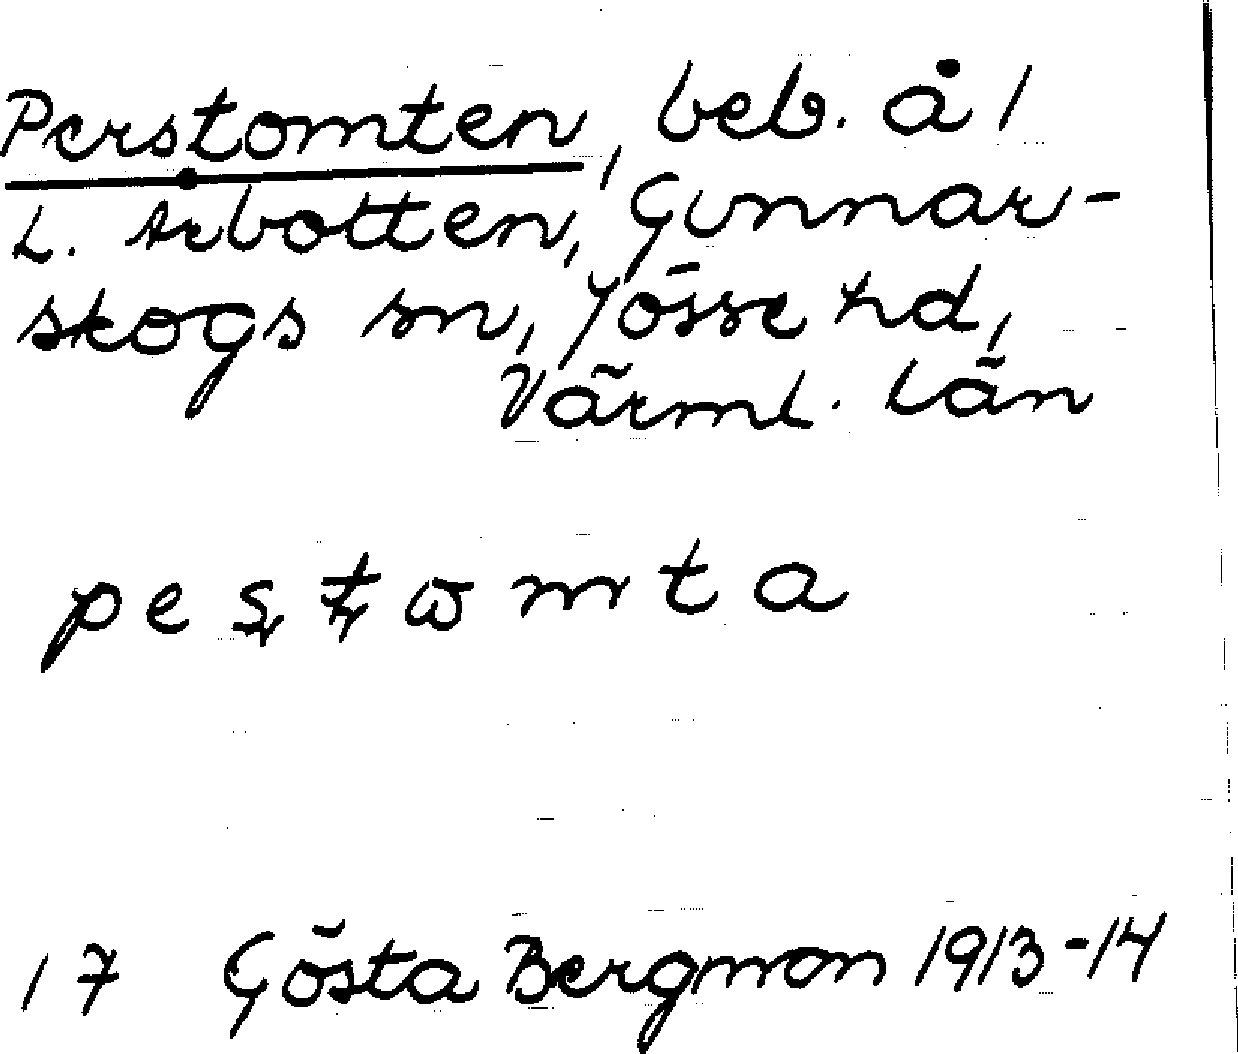 Perstomten, beb. å 1
L. Arbotten, Gunnar-
skogs sn, Jösse hd,
Värml. län
pes̨t̨ωmta
17 Gösta Bergman 1913-14